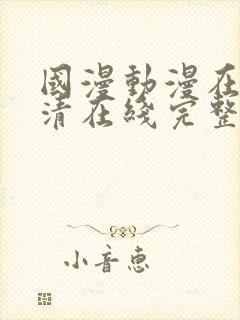 國漫動漫在
清在綫完整
小音惠